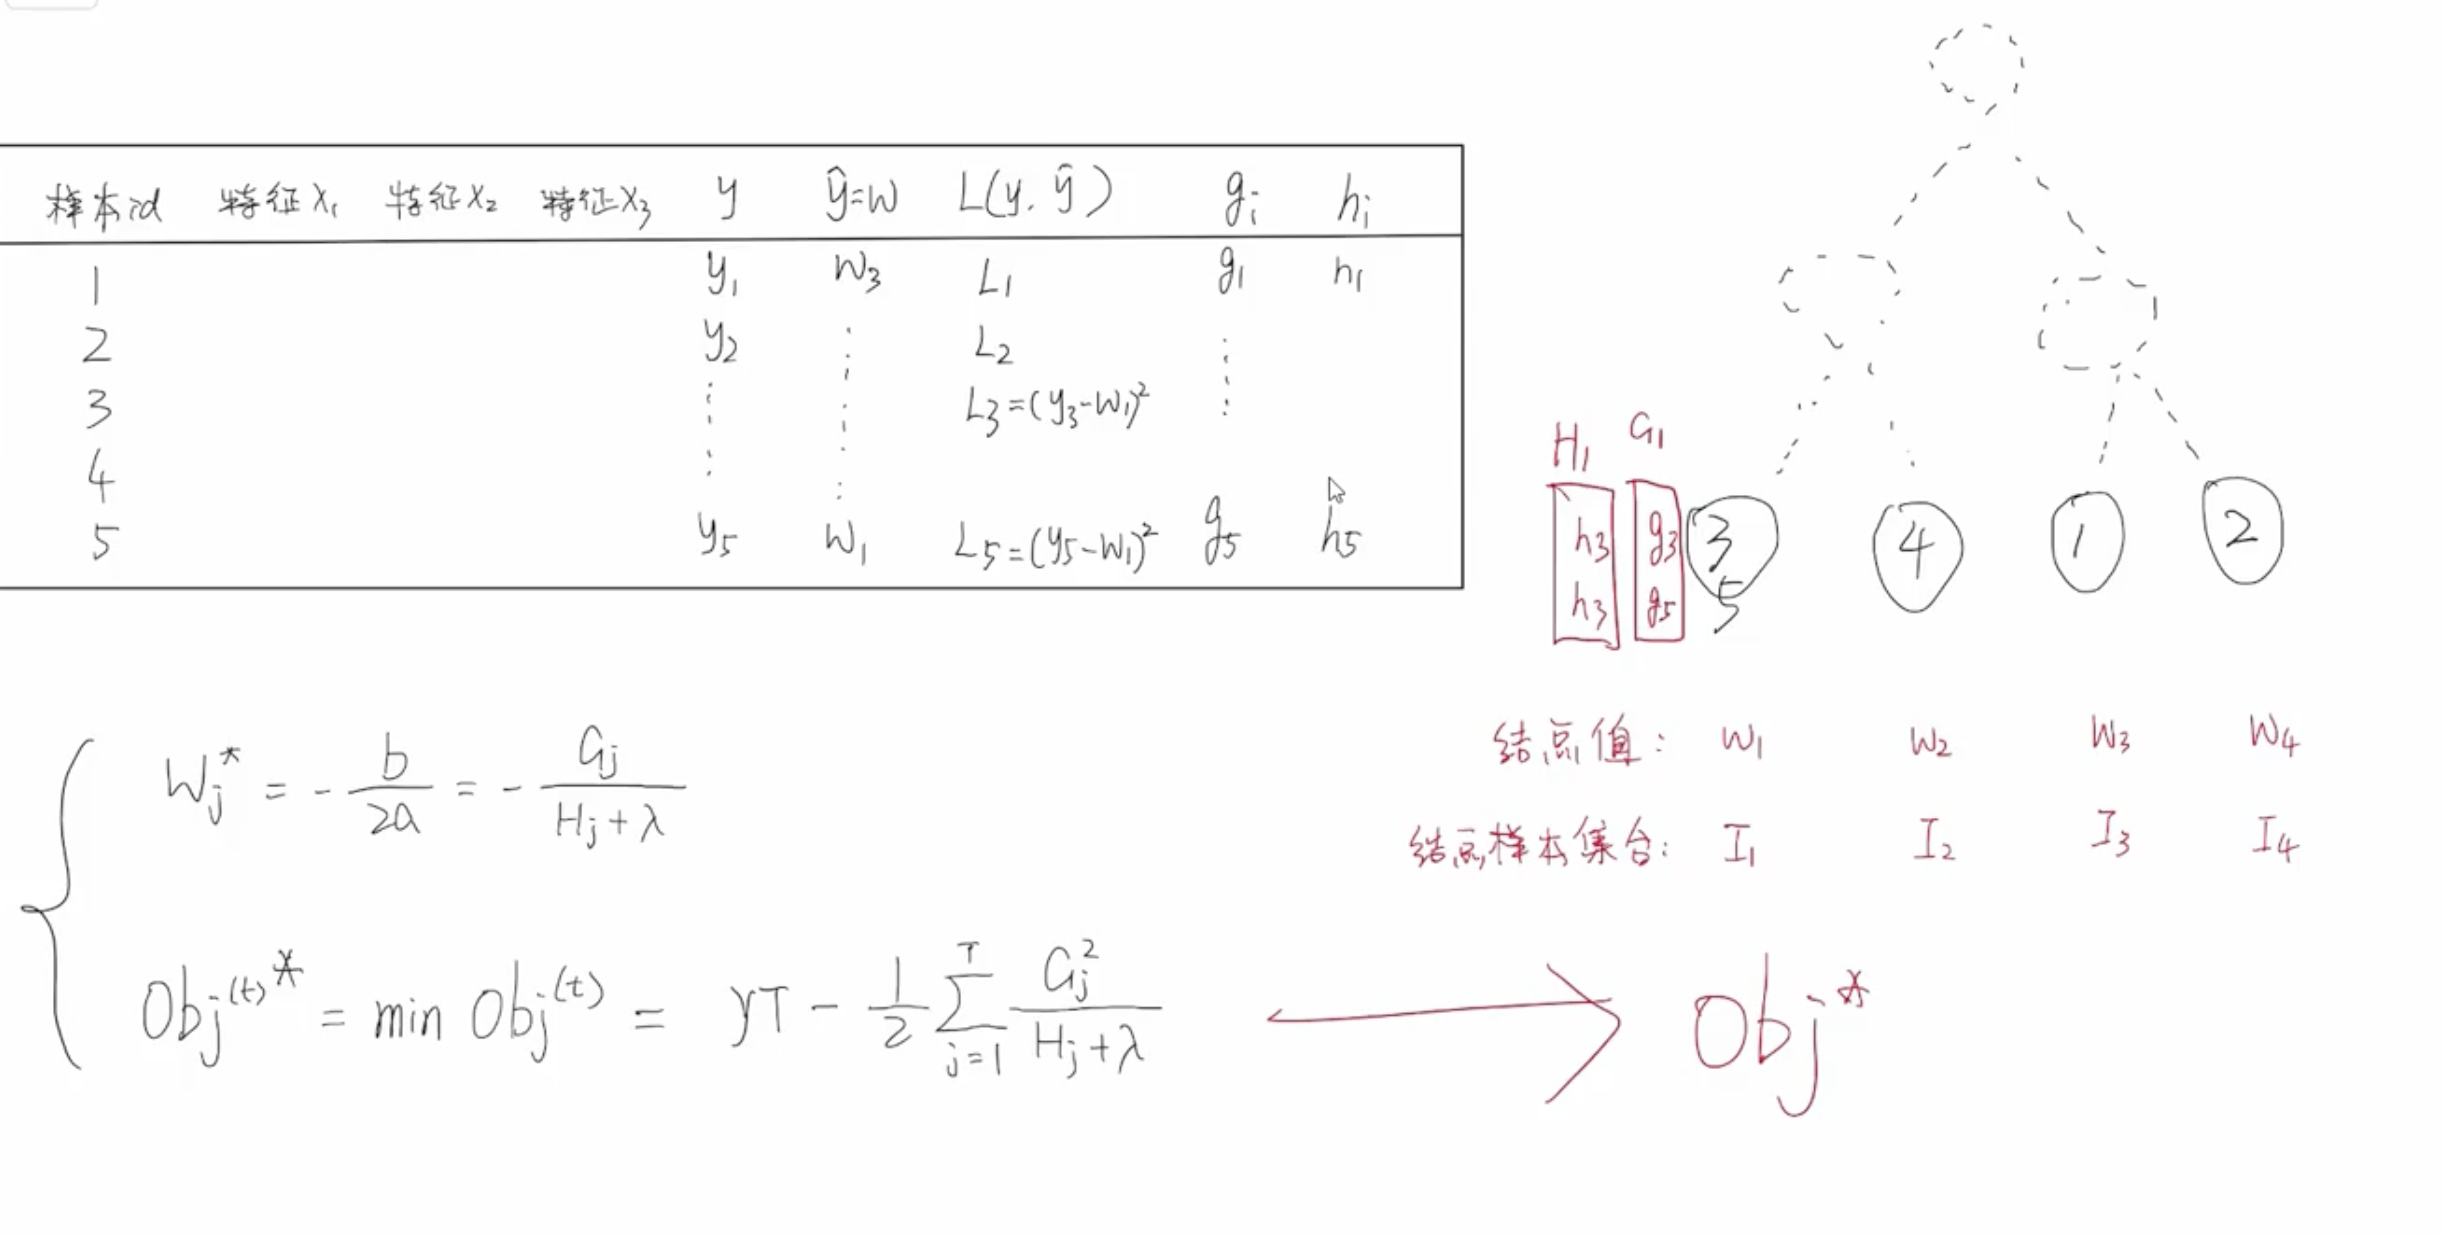 样本id 特征X₁ 特征X₂ 特征X₃ y ŷ=w L(y, ŷ) gᵢ hᵢ
1 y₁ w₃ L₁ g₁ h₁
2 y₂ L₂
3 L₃=(y₃-w₁)²
4
5 y₅ w₁ L₅=(y₅-w₁)² g₅ h₅
H₁ G₁
h₃ g₃ 3 4 1 2
h₃ g₅ 5
结点值: w₁ w₂ w₃ w₄
结点样本集合: I₁ I₂ I₃ I₄
Wⱼ* = - b/2a = - Gⱼ/(Hⱼ+λ)
Obj⁽ᵗ⁾* = min Obj⁽ᵗ⁾ = γT - 1/2 ∑ⱼ₌₁ᵀ Gⱼ²/(Hⱼ+λ) Obj*